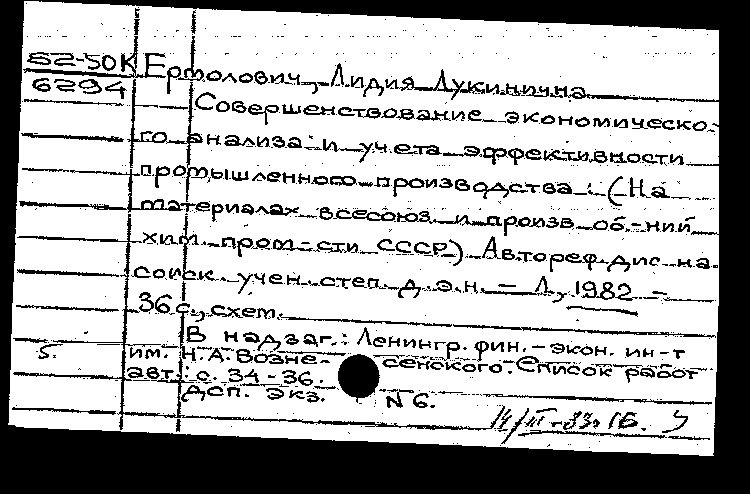 82-50К Ермолович, Лидия Лукинична
6294
Совершенствование экономическо-
го анализа и учета эффективности
промышленного производства: (На
материалах всесоюз. и произв. об.-ний
хим. пром-сти СССР) Автореф. дис. на
соиск. учен. степ. д.э.н. – Л., 1982 –
36 с., схем.
В надзаг.: Ленингр. фин.-экон. ин-т
5. им. Н.А. Вознесенского. Список работ
авт.: с. 34-36.
ДСП. Экз. N 6.
14/III-83. 1Б.